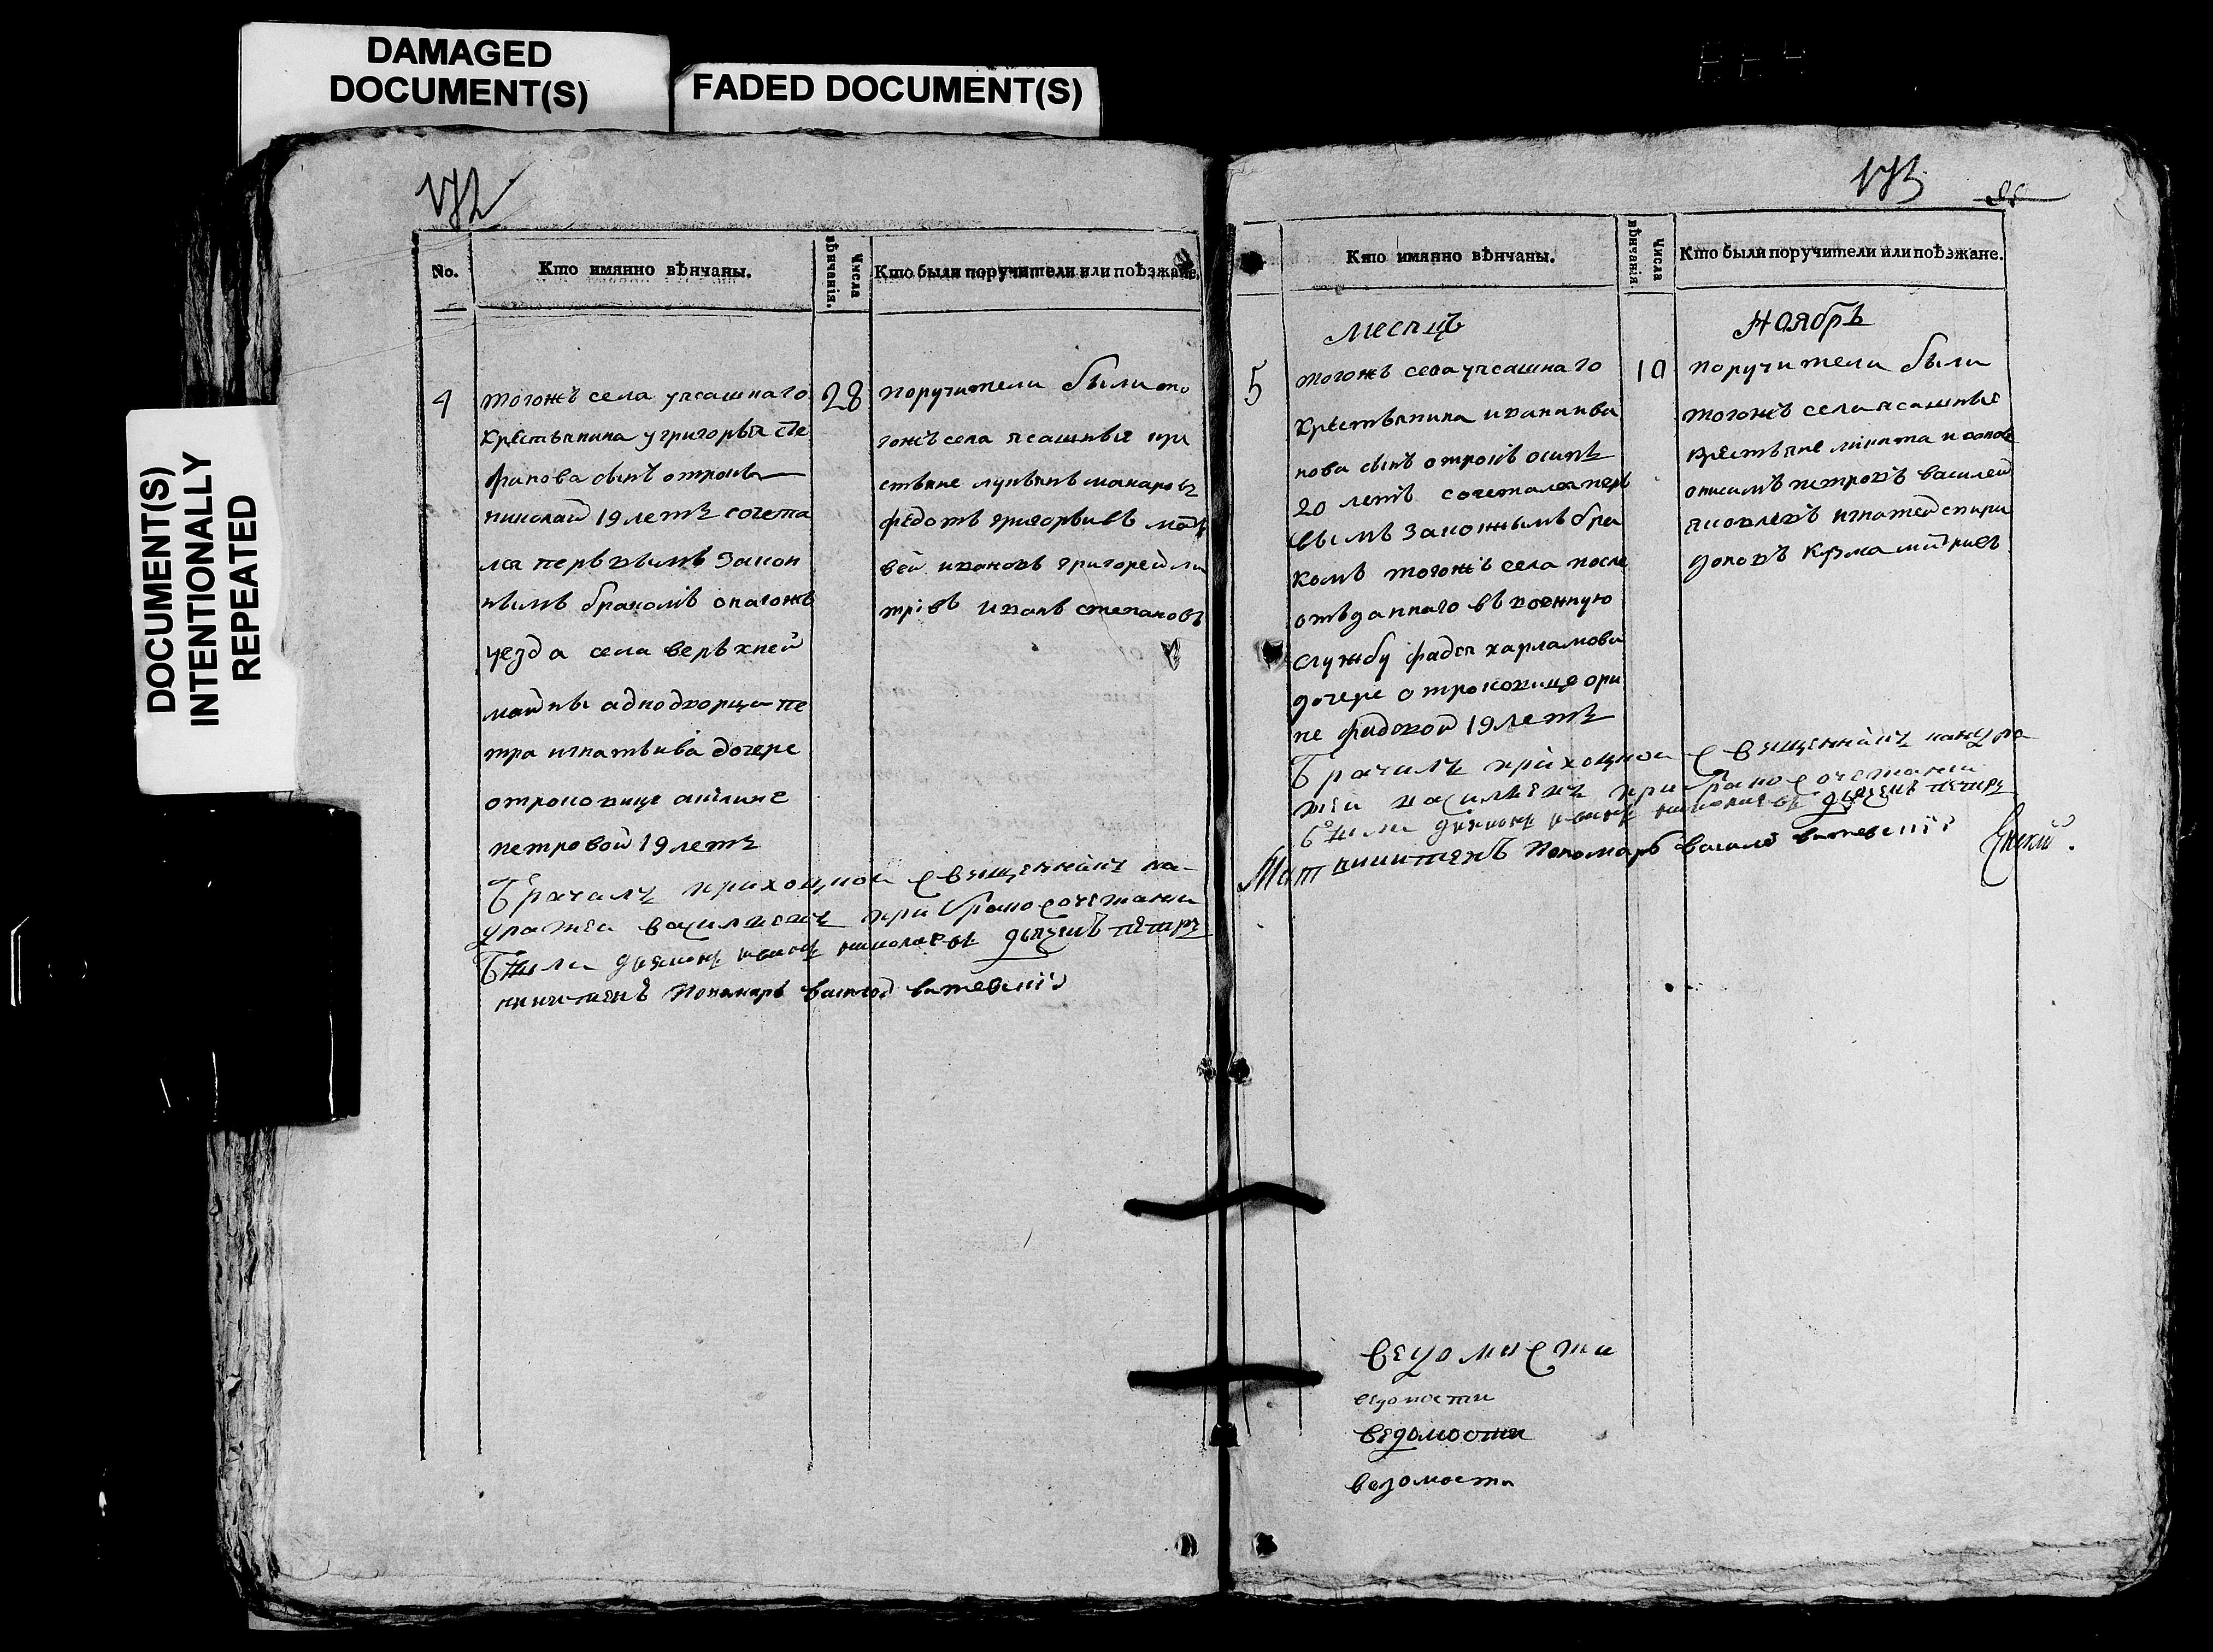 DAMAGED
DOCUMENT(S)
FADED DOCUMENT(S)
DOCUMENT(S)
INTENTIONALLY
REPEATED
172
No.
Кто имянно вѣнчаны.
Числа
вѣнчанія.
Кто были поручители или поѣзжане.
4
тогожъ села уясашнаго
крестьянина у григорья сте
фанова сынъ отрокъ
николай 19 летъ сочета
лся первымъ закон
нымъ бракомъ онагожъ
уезда села верьхней
маз адноdворца пе
тра игнатьива дочере
отроковице
петровой 19 летъ
28
поручители были то
гожъ села ясашныя кре
стьяне макаровъ
федотъ григорьивъ мат
вей ивановъ григорей ми
трівъ иванъ степановъ
Брачилъ приходной священникъ ка
василиевъ при бракосочетани
были диаконъ николаевъ дьячекъ петръ
никитинъ пономарь василей
173
Кто имянно вѣнчаны.
Числа
вѣнчанія.
Кто были поручители или поѣзжане.
месяцъ
Ноябрь
5
тогожъ села уясашнаго
крестьянина ивана ива
нова сынъ отрокъ осипъ
20 летъ сочетался пер
вымъ законнымъ бра
комъ тогожъ села после
отъданнаго въ военную
службу фадея харламова
дочере отроковице ори
не фадовой 19 летъ
10
поручители были
тогожъ села ясашныя
крестьяне никита
онисимъ петровъ василей
яковлевъ игнатей спири
доновъ кузма митриевъ
Брачилъ приходной священникъ
василиевъ при бракосочетани
были диаконъ николаевъ дьячекъ петръ
никитинъ Пономарь василей
ведомости
ведомости
ведомости
ведомости